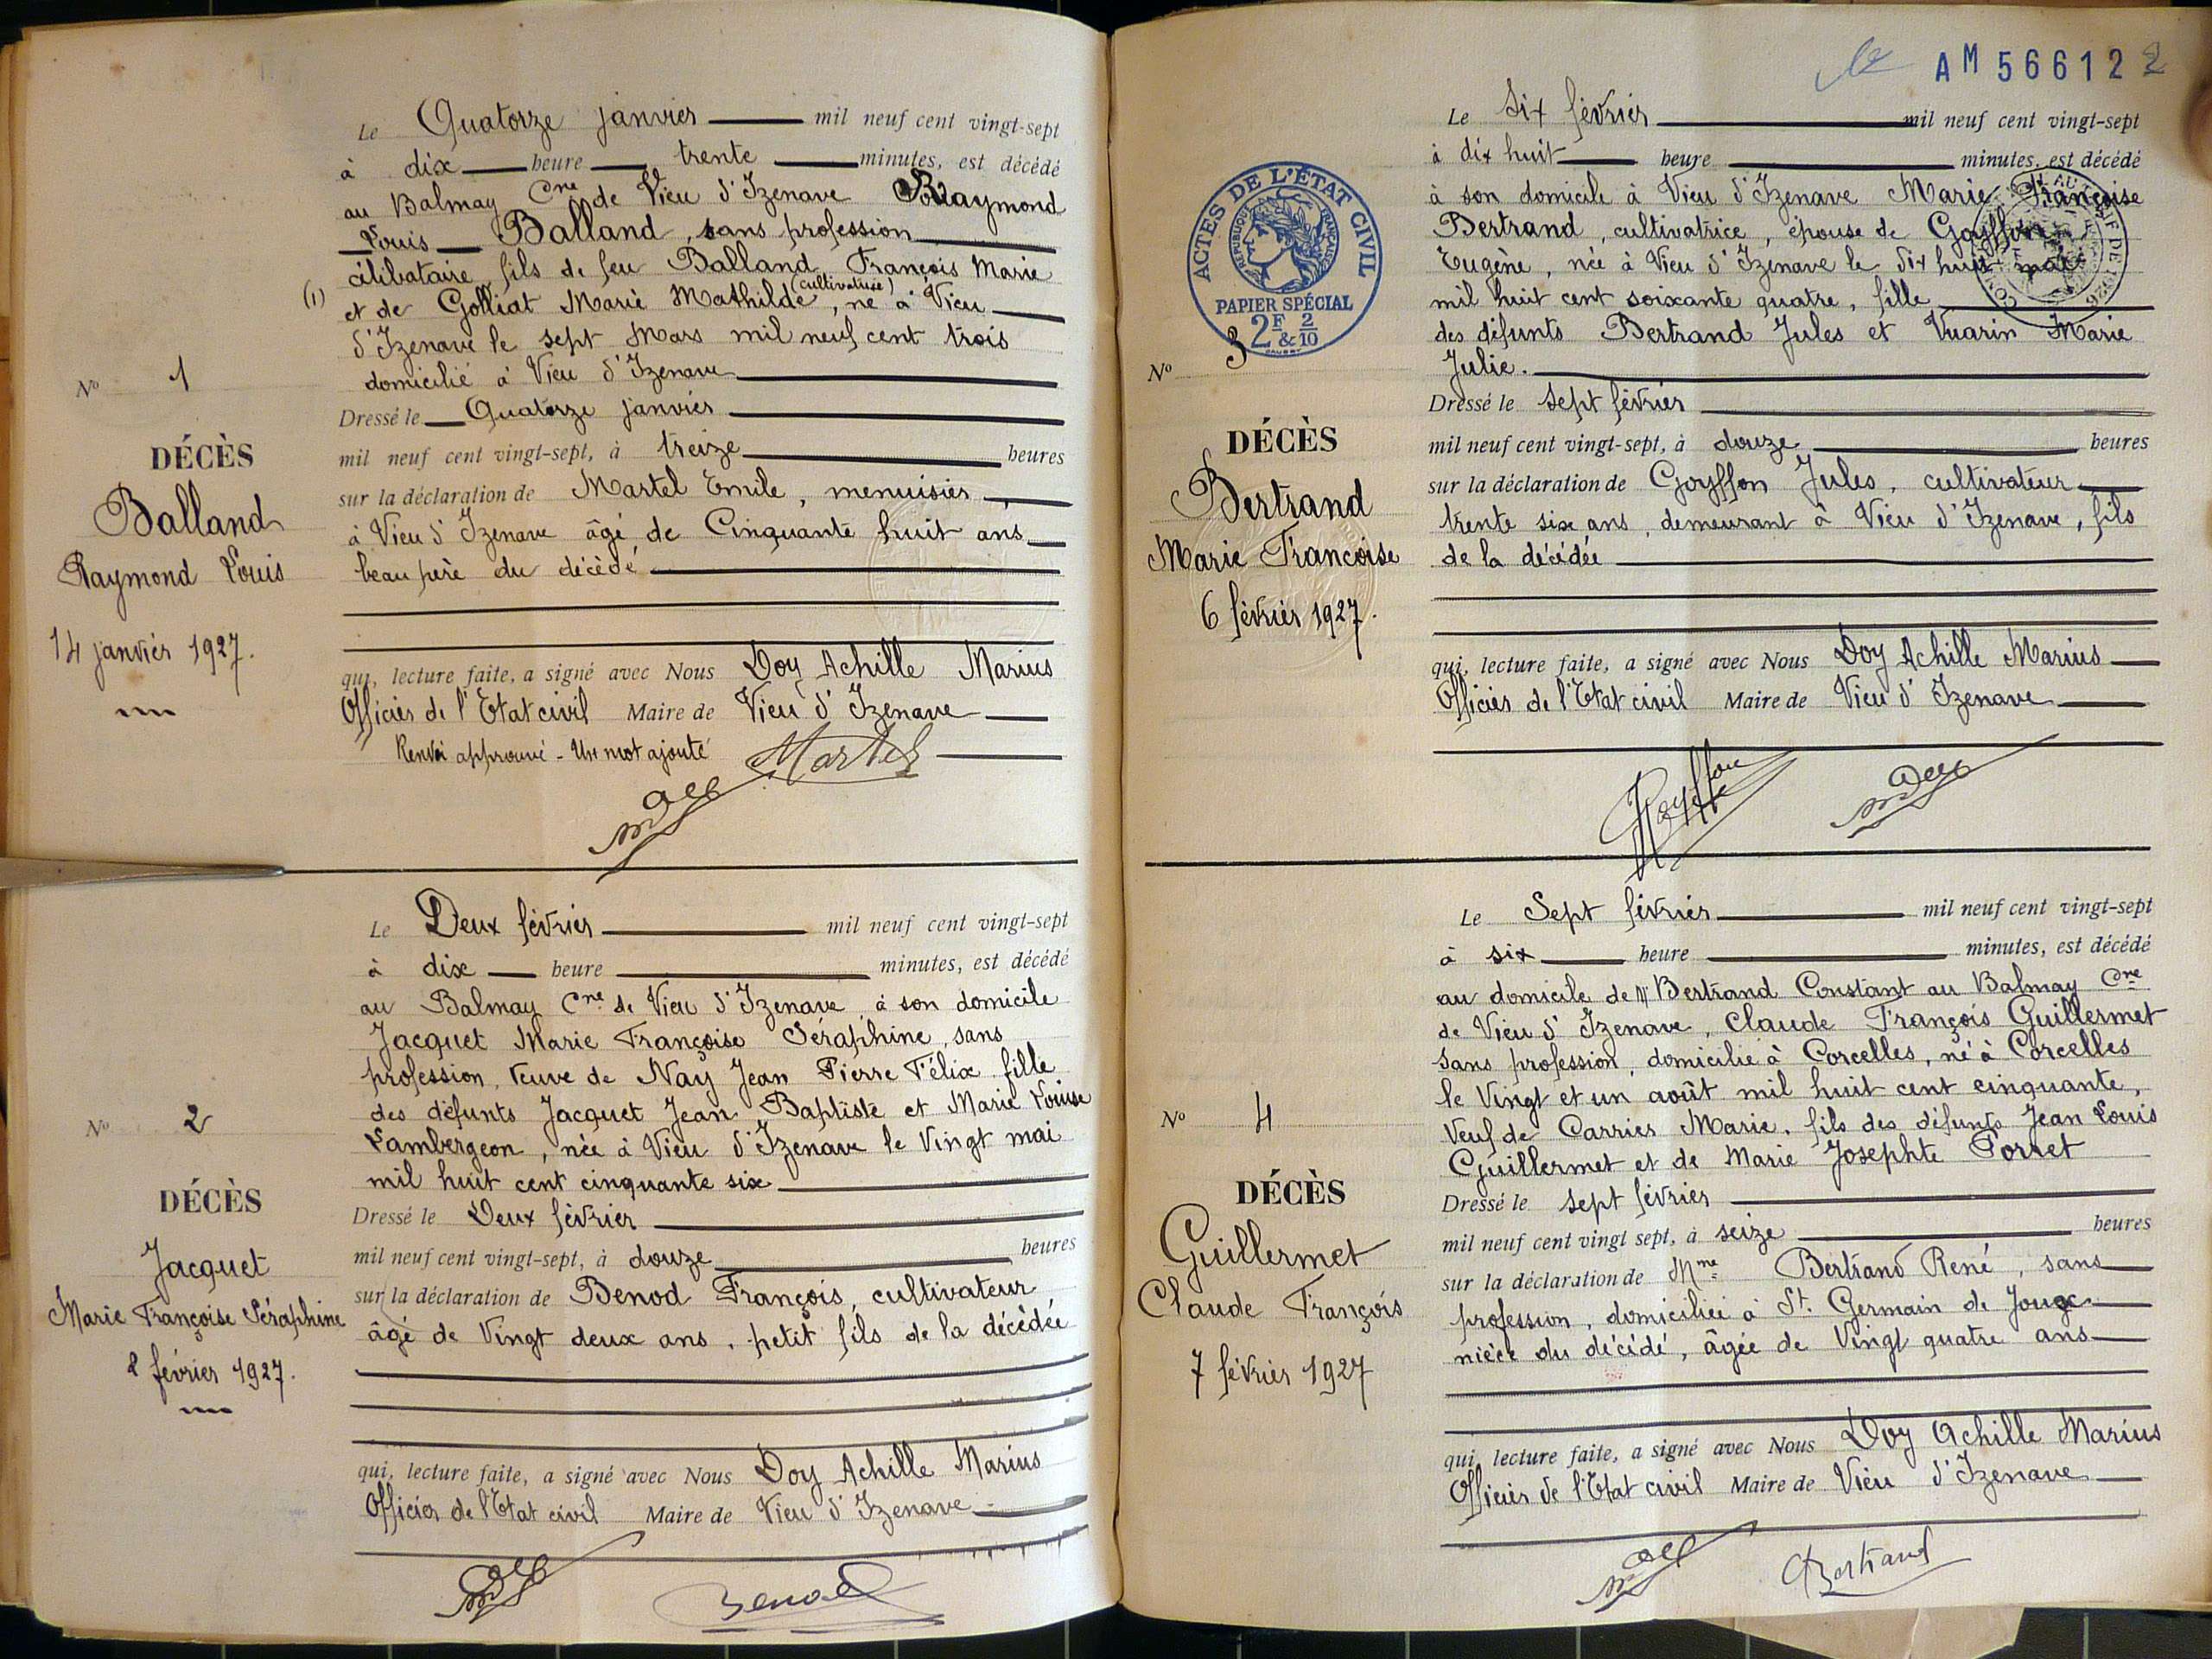 Le Quatorze janvier mil neuf cent vingt-sept
à dix heure trente minutes, est décédé
au Balmay Cne de Vieu d'Izenave Raymond
Louis Balland, sans profession
célibataire, fils de feu Balland François Marie
(1) et de Golliat Marie Mathilde (cultivatrice), né à Vieu
d'Izenave le sept Mars mil neuf cent trois
domicilié à Vieu d'Izenave
Dressé le Quatorze janvier
mil neuf cent vingt-sept, à treize heures
sur la déclaration de Martel Emile, menuisier
à Vieu d'Izenave âgé de Cinquante huit ans
beau père du décédé
qui, lecture faite, a signé avec Nous Doy Achille Marius
Officier de l'Etat civil Maire de Vieu d'Izenave
Renvoi approuvé - Un mot ajouté Martel
No 1
DÉCÈS
Balland
Raymond Louis
14 janvier 1927.
Le Deux février mil neuf cent vingt-sept
à dix heure minutes, est décédé
au Balmay Cne de Vieu d'Izenave à son domicile
Jacquet Marie Françoise Séraphine, sans
profession, veuve de Nay Jean Pierre Félix, fille
des défunts Jacquet Jean Baptiste et Marie Louise
Lambergeon, née à Vieu d'Izenave le Vingt mai
mil huit cent cinquante six
Dressé le Deux février
mil neuf cent vingt-sept, à douze heures
sur la déclaration de Benod François, cultivateur,
âgé de Vingt deux ans, petit fils de la décédée
qui, lecture faite, a signé avec Nous Doy Achille Marius
Officier de l'Etat civil Maire de Vieu d'Izenave
Benod
No 2
DÉCÈS
Jacquet
Marie Françoise Séraphine
2 février 1927.
AM 566122
Le Six février mil neuf cent vingt-sept
à dix huit heure minutes, est décédé
à son domicile à Vieu d'Izenave Marie Françoise
Bertrand, cultivatrice, épouse de Goyffon
Eugène, née à Vieu d'Izenave le dix huit mai
mil huit cent soixante quatre, fille
des défunts Bertrand Jules et Vuarin Marie
Julie.
Dressé le sept février
mil neuf cent vingt-sept, à douze heures
sur la déclaration de Goyffon Jules, cultivateur
trente six ans, demeurant à Vieu d'Izenave, fils
de la décédée
qui, lecture faite, a signé avec Nous Doy Achille Marius
Officier de l'Etat civil Maire de Vieu d'Izenave
Goyffon
ACTES DE L'ÉTAT CIVIL
RÉPUBLIQUE FRANÇAISE
PAPIER SPÉCIAL
2F & 2/10
No 3
DÉCÈS
Bertrand
Marie Francoise
6 février 1927.
Le Sept février mil neuf cent vingt-sept
à six heure minutes, est décédé
au domicile de Mr Bertrand Constant au Balmay Cne
de Vieu d'Izenave, Claude François Guillermet
sans profession, domicilié à Corcelles, né à Corcelles
le Vingt et un août mil huit cent cinquante,
Veuf de Carrier Marie, fils des défunts Jean Louis
Guillermet et de Marie Josephte Porret
Dressé le sept février
mil neuf cent vingt sept, à seize heures
sur la déclaration de Mme Bertrand René, sans
profession, domiciliée à St. Germain de Joux
nièce du décédé, âgée de Vingt quatre ans
qui, lecture faite, a signé avec Nous Doy Achille Marius
Officier de l'Etat civil Maire de Vieu d'Izenave
Bertrand
No 4
DÉCÈS
Guillermet
Claude François
7 février 1927